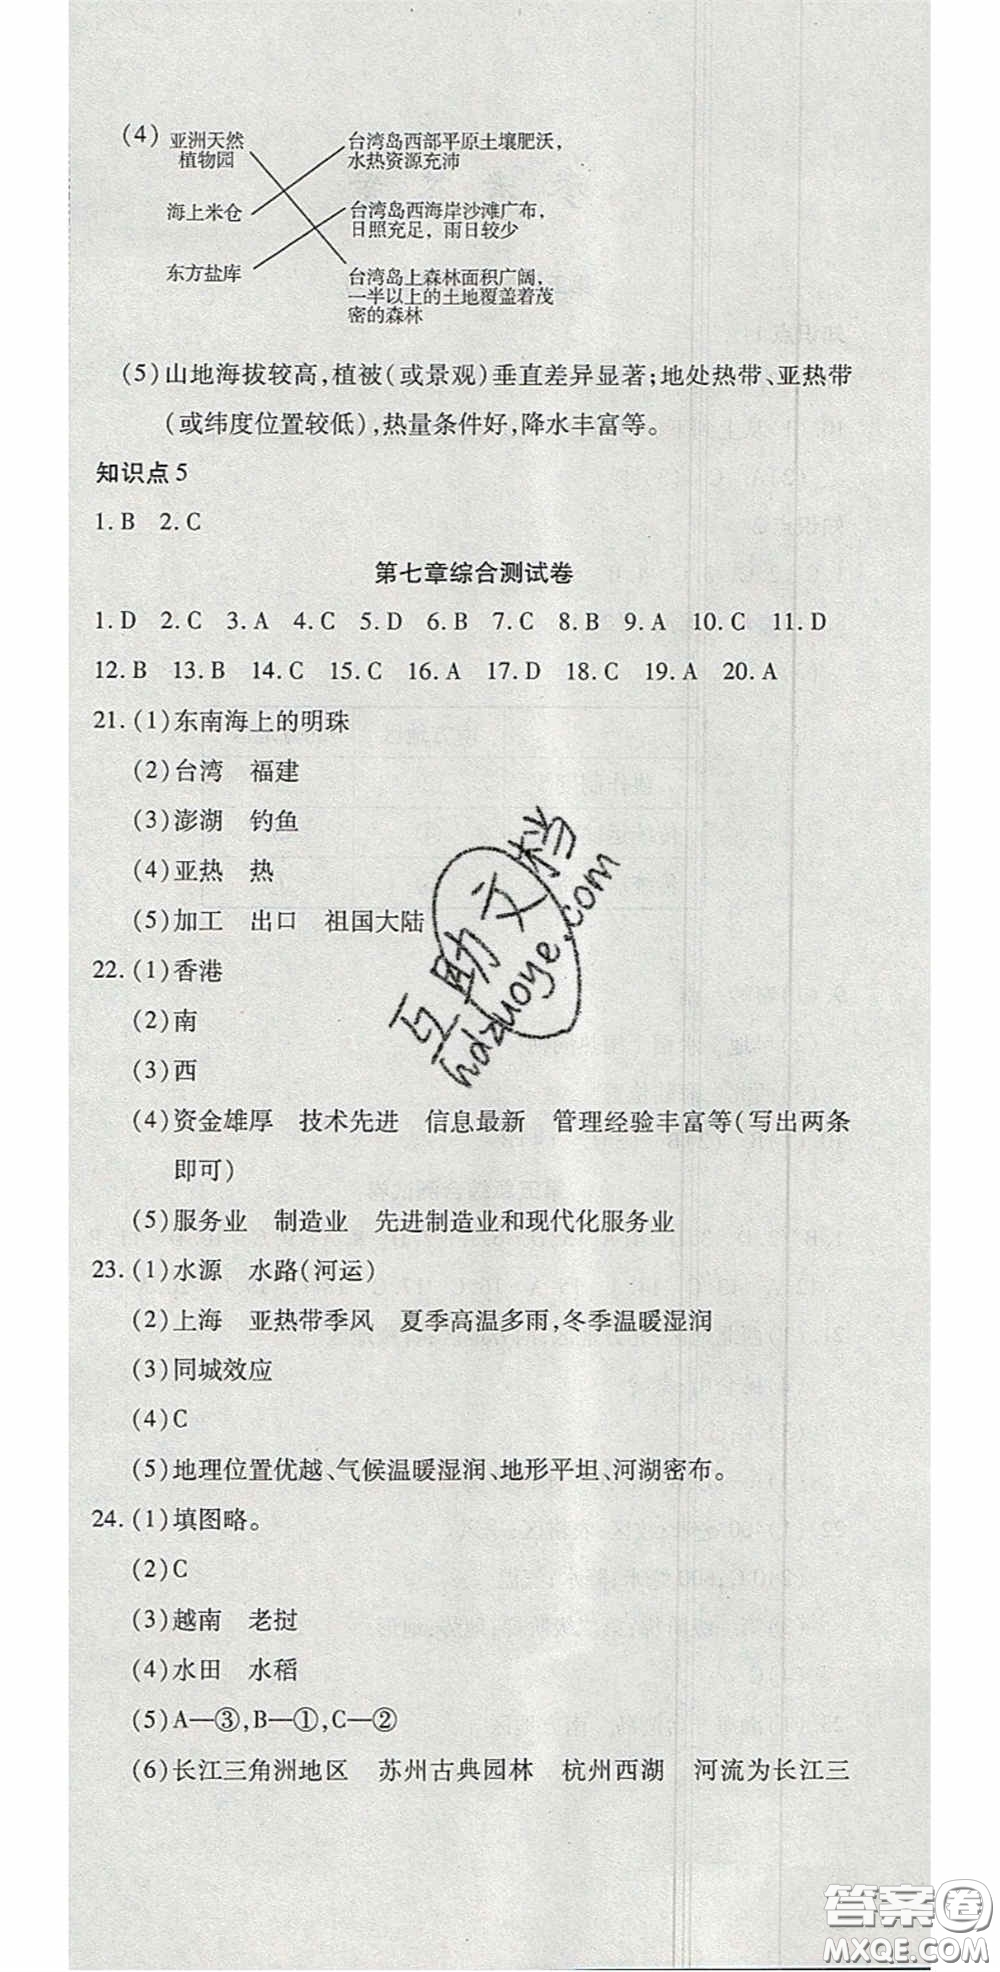 (4) 亚洲天然 台湾岛西部平原土壤肥沃,
植物园 水热资源充沛
海上米仓 台湾岛西海岸沙滩广布,
日照充足,雨日较少
东方盐库 台湾岛上森林面积广阔,
一半以上的土地覆盖着茂
密的森林
(5)山地海拔较高,植被(或景观)垂直差异显著;地处热带、亚热带
(或纬度位置较低),热量条件好,降水丰富等。
知识点5
1.B 2.C
第七章综合测试卷
1.D 2.C 3.A 4.C 5.D 6.B 7.C 8.B 9.A 10.C 11.D
12.B 13.B 14.C 15.C 16.A 17.D 18.C 19.A 20.A
21.(1)东南海上的明珠
(2)台湾 福建
(3)澎湖 钓鱼
(4)亚热 热
(5)加工 出口 祖国大陆
22.(1)香港
(2)南
(3)西
(4)资金雄厚 技术先进 信息最新 管理经验丰富等(写出两条
即可)
(5)服务业 制造业 先进制造业和现代化服务业
23.(1)水源 水路(河运)
(2)上海 亚热带季风 夏季高温多雨,冬季温暖湿润
(3)同城效应
(4)C
(5)地理位置优越、气候温暖湿润、地形平坦、河湖密布。
24.(1)填图略。
(2)C
(3)越南 老挝
(4)水田 水稻
(5)A—③,B—①,C—②
(6)长江三角洲地区 苏州古典园林 杭州西湖 河流为长江三
互助文档
hdzuoye.com
答案圈
MXQE.COM